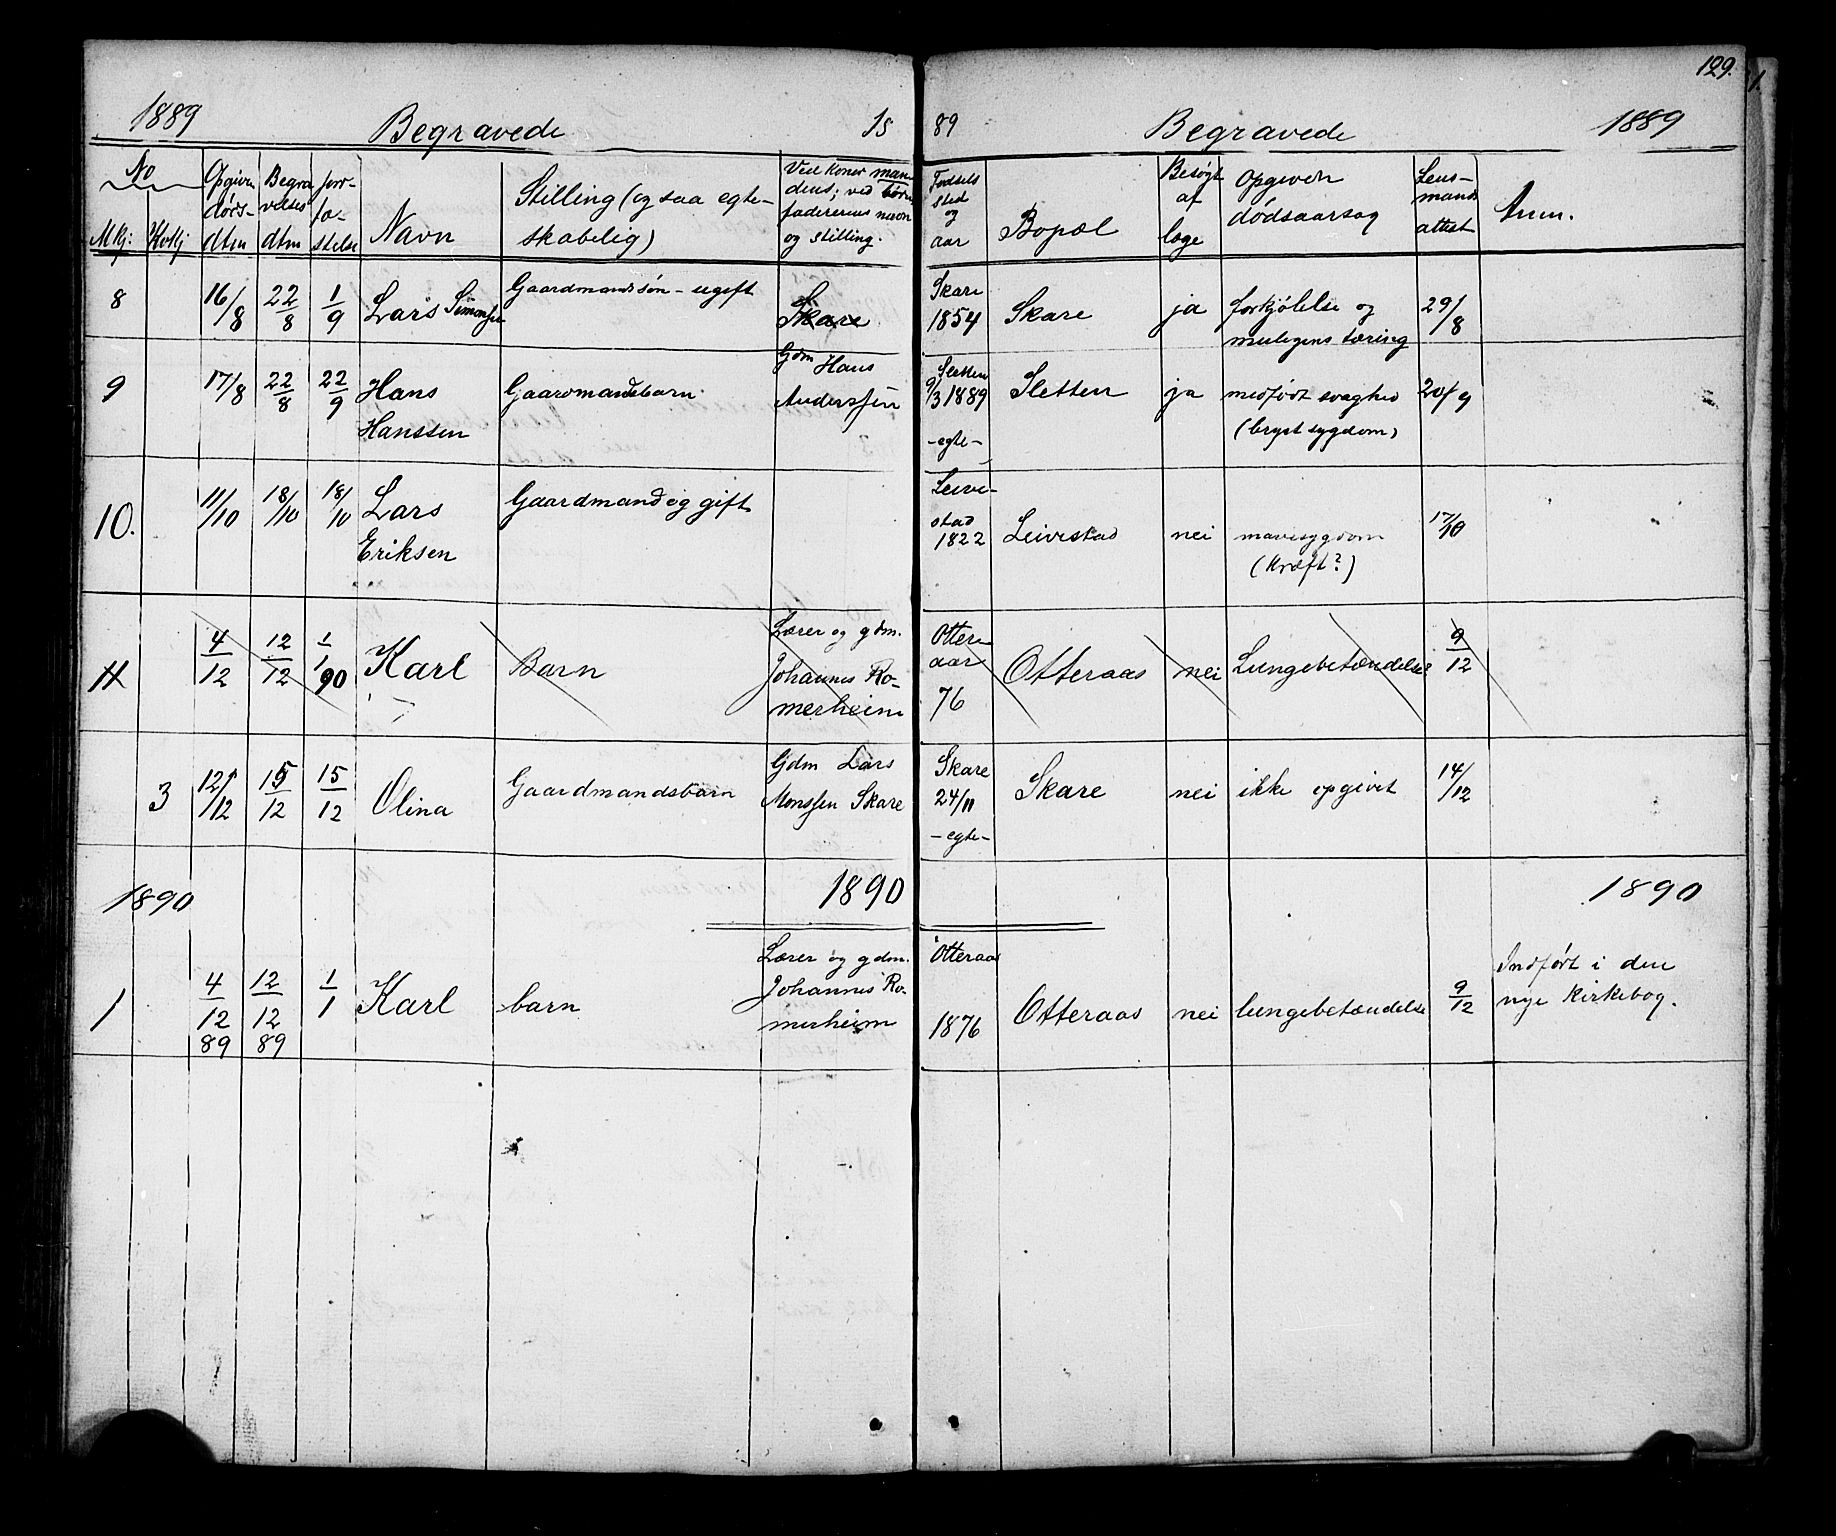 129.
1889 Begravede 18 89 Begravede 1889
No
Mkj: Kvkj
Opgiven døds- dtm
Begravelses dtm
Jordfæ- stelse
Navn
Stilling (og saa egte-
skabelig)
Ved koner man-
dens; ved børn
faderens navn
og stilling.
Fødsels sted og aar
Bopæl
Besøgt af læge
Opgiven dødsaarsag
Lens- mands attest
Anm.
8 16/8 22/8 1/9 Lars Simonsen Gaardmandssøn - ugift Skare Skare 1854 Skare ja forkjølelse og 29/8
muligens tæring
9 17/8 22/8 22/9 Hans Gaardmandsbarn Gdm Hans Sletten
Hanssen Anderssen 9/3 1889 Sletten ja medfødt svaghed 20/9
-egte- (brystsygdom)
10. 11/10 18/10 18/10 Lars Gaardmand og gift Leivi-
Eriksen stad 1822 Leivestad nei mavesygdom 17/10
(Kræft?)
11 4/12 12/12 1/1 90 Karl Barn Lærer og gdm.
Johannes Ro-
merheim Otteraas 76 Otteraas nei Lungebetændelse 9/12
3 12/12 15/12 15/12 Olina Gaardmandsbarn Gdm Lars
Monssen Skare Skare
24/11
-egte- Skare nei ikke opgivet 14/12
1890 1890 1890
1 4/12 89 12/12 89 1/1 Karl barn Lærer og gdm.
Johannes Ro-
merheim Otteraas
1876 Otteraas nei lungebetændelse 9/12 Indført i den
nye Kirkebog.